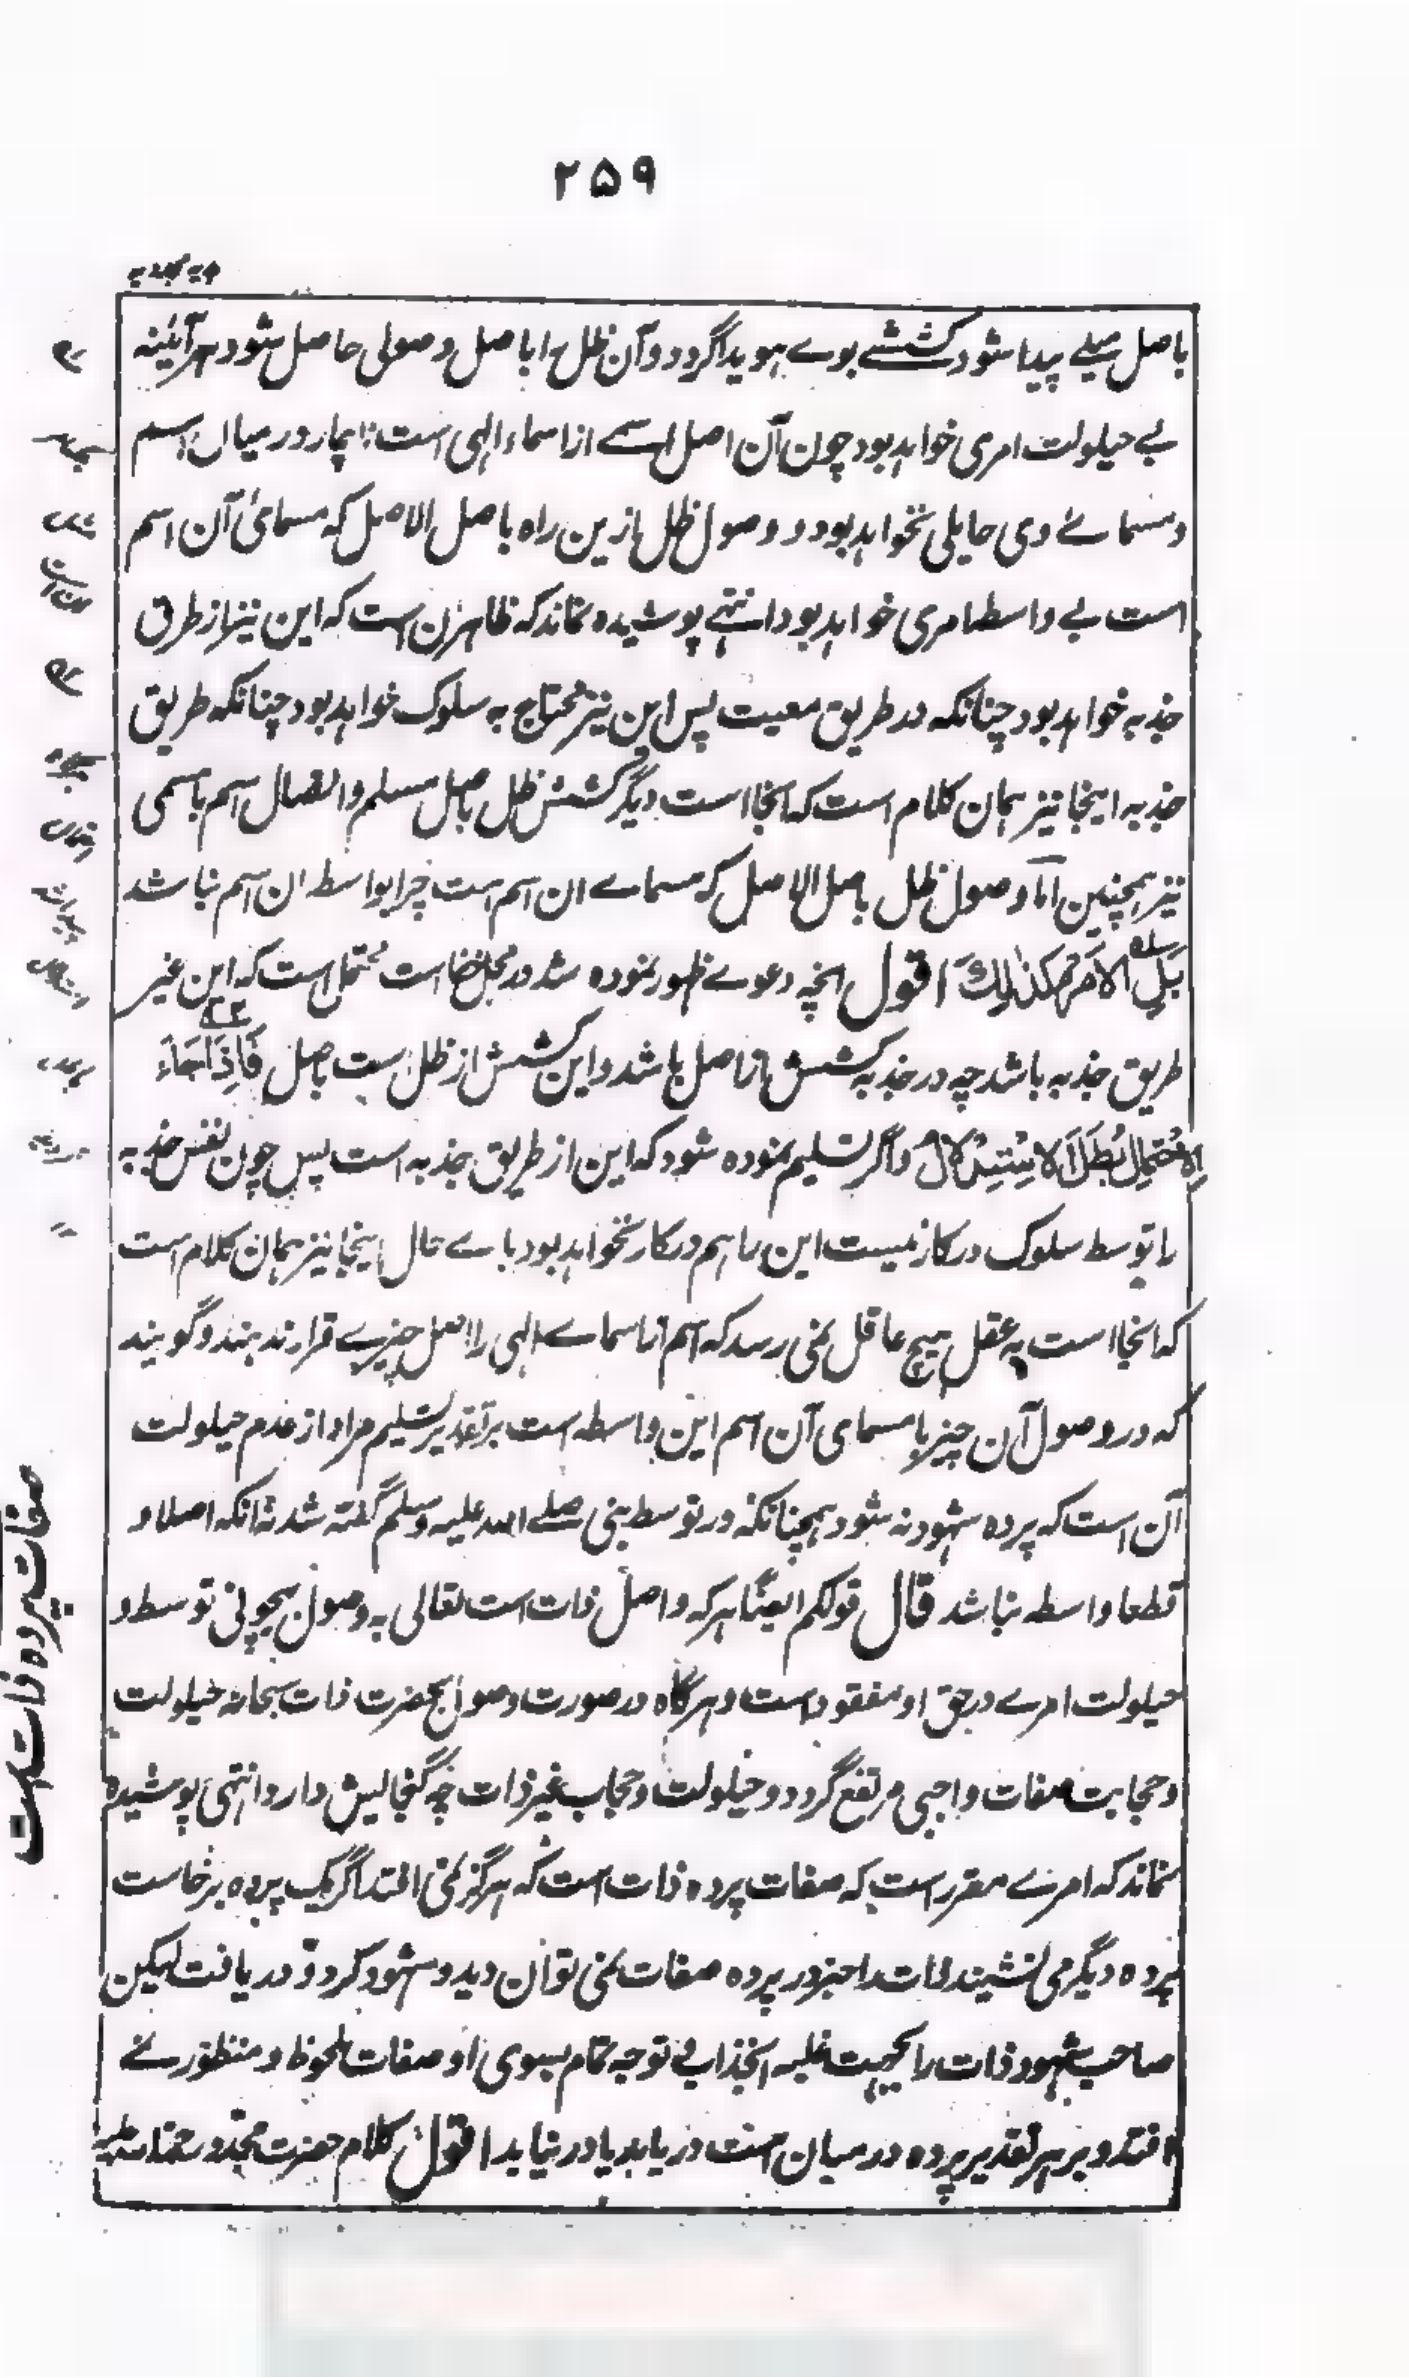 ۲۵۹
هدیه مجددیه
باصل میلے پیدا شود کششے بوے ہویدا گردد و آن ظل را باصل وصولی حاصل شود ہرآئینہ
بے حیلولت امری خواہد بود چون آن اصل اسمے از اسماء الہی است ناچار در میان اسم
و مسمائے وی حایلی نخواہد بود و وصول ظل ازین راہ باصل الاصل کہ مسمائ آن اسم
است بے واسطہ امری خواہد بود انتہے پوشیدہ نماند کہ ظاہر آن است کہ این نیز از طرق
جذبہ خواہد بود چنانکہ در طریق معیت پس این نیز محتاج بہ سلوک خواہد بود چنانکہ طریق
جذبہ اینجا نیز ہمان کلام است کہ آنجا است دیگر کشش ظل باصل مسلم و اتصال اسم با مسمی
نیز ہمچنین اما وصول ظل باصل الاصل کہ مسماے ان اسم است چرا بواسطہ ان اسم نباشد
بَلِ الاَمرُ كَذٰلِكَ اقول انچہ دعوے ظہور نمودہ شد در محل خفا است محتمل است کہ این غیر
طریق جذبہ باشد چہ در جذبہ کشش از اصل باشد و این کشش از ظل است باصل فَاِذَا جَاءَ
الاِحْتِمَالُ بَطَلَ الاِسْتِدْلَالُ و اگر تسلیم نمودہ شود کہ این از طریق جذبہ است پس چون نفس جذبہ
را توسط سلوک درکار نیست این را ہم درکار نخواہد بود باے حال اینجا نیز ہمان کلام است
کہ آنجا است بہ عقل ہیچ عاقل نمی رسد کہ اسم از اسماے الہی را اصل چیزے قرار ندہند و گویند
کہ در وصول آن چیز با مسمای آن اسم این واسطہ است بر تقدیر تسلیم مراد از عدم حیلولت
آن است کہ پردہ شہود نہ شود ہمچنانکہ در توسط نبی صلے اللہ علیہ وسلم گفتہ شد نہ آنکہ اصلا و
قطعا واسطہ نباشد قال قولکم ایضًا ہر کہ واصل ذات است تعالی بہ وصول بیچونی توسط و
حیلولت امرے در حق او مفقود است و ہرگاہ در صورت وصول بحضرت ذات سبحانہ حیلولت
و حجابیت صفات واجبی مرتفع گردد و حیلولت و حجاب غیر ذات چہ گنجایش دارد انتہی پوشیدہ
نماند کہ امرے مقرر است کہ صفات پردہ ذات است کہ ہرگز نمی افتد اگر یک پردہ برخاست
پردہ دیگر می نشیند ذات را جز در پردہ صفات نمی توان دید و مشہود کرد و دریافت لیکن
صاحب شہود ذات را بجہت غلبہ انجذاب و توجہ تمام بسوی او صفات ملحوظ و منظور نے
افتد و بر ہر تقدیر پردہ درمیان است دریابد یا در نیابد اقول کلام حضرت مجدد رحمۃ اللہ علیہ
صفات پردہ ذات است